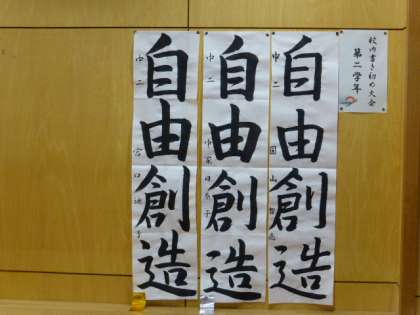 校内書き初め大会
第二学年
自由創造
中二
自由創造
中二
自由創造
中二